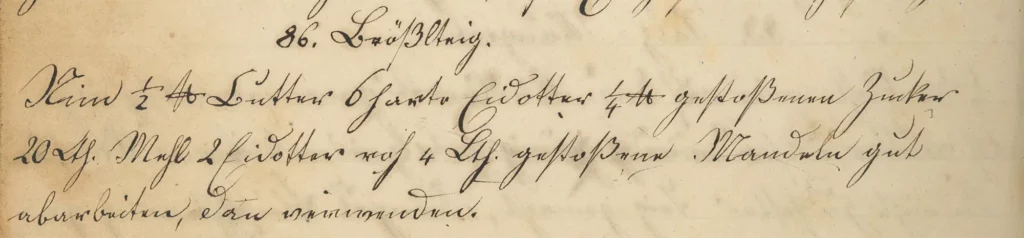 86. Brößlteig.
Nim ½ ℔ Butter 6 harte Eidotter ¼ ℔ gestoßenen Zucker
20 Lth. Mehl 2 Eidotter roh 4 Lth. gestoßene Mandeln gut
abarbeiten, dan̅ verwenden.